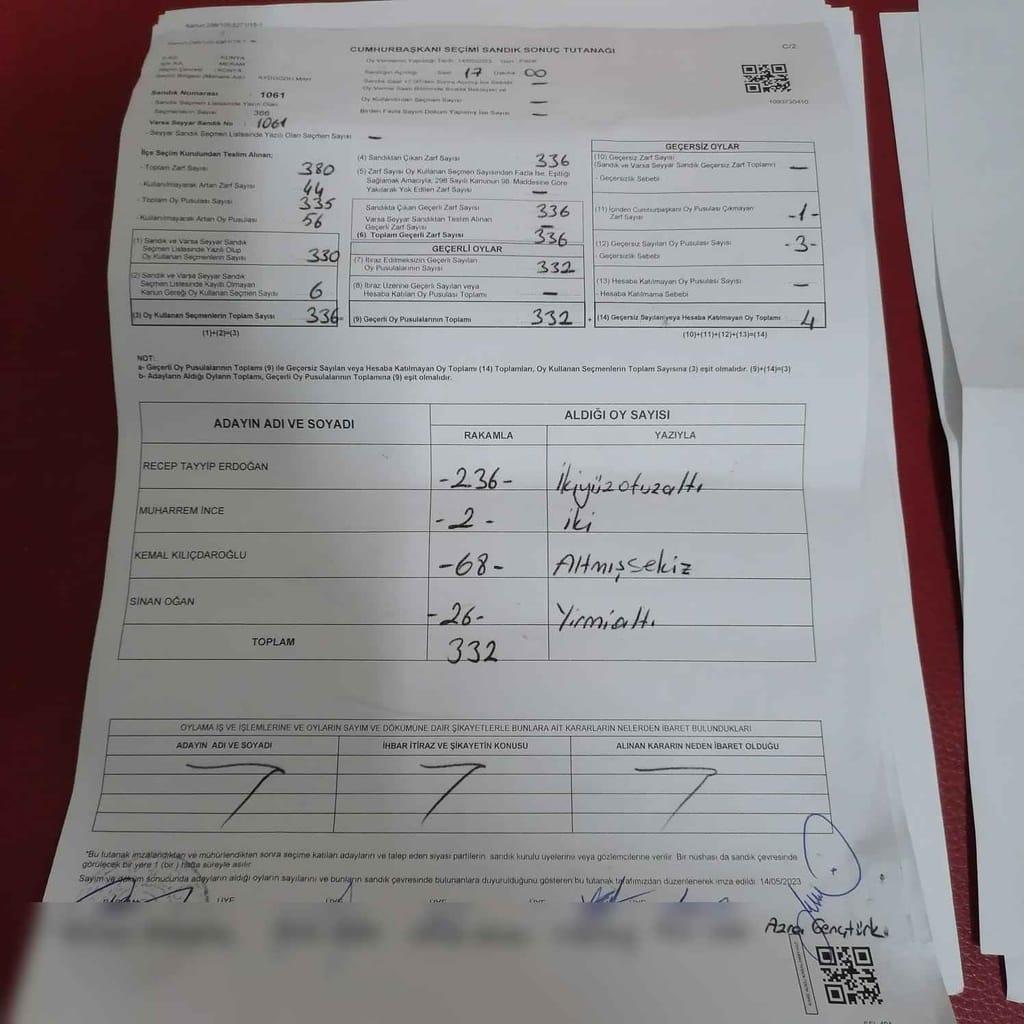 CUMHURBAŞKANI SEÇİMİ SANDIK SONUÇ TUTANAĞI
C/2
Oy Vermenin Yapıldığı Tarih: 14/05/2023 Gün: PAZAR
KONYA
MERAM
KONYA
AYDOĞDU MAH
Sandığın Açıldığı Saat 17 Dakika 00
Sandık Saat 17.00'den Sonra Açılmış İse Sebebi —
Oy Kullandırılan Seçmen Sayısı —
Birden Fazla Sayım Döküm Yapılmış İse Sayısı —
1093730410
Sandık Numarası : 1061
- Sandık Seçmen Listesinde Yazılı Olan
Seçmenlerin Sayısı : 366
Varsa Seyyar Sandık No : 1061
- Seyyar Sandık Seçmen Listesinde Yazılı Olan Seçmen Sayısı —
İlçe Seçim Kurulundan Teslim Alınan;
- Toplam Zarf Sayısı 380
- Kullanılmayarak Artan Zarf Sayısı 44
- Toplam Oy Pusulası Sayısı 335
- Kullanılmayarak Artan Oy Pusulası 56
(1) Sandık ve Varsa Seyyar Sandık
Seçmen Listesinde Yazılı Olup
Oy Kullanan Seçmenlerin Sayısı 330
(2) Sandık ve Varsa Seyyar Sandık
Seçmen Listesinde Kayıtlı Olmayan
Kanun Gereği Oy Kullanan Seçmen Sayısı 6
(3) Oy Kullanan Seçmenlerin Toplam Sayısı 336
(1)+(2)=(3)
(4) Sandıktan Çıkan Zarf Sayısı 336
(5) Zarf Sayısı Oy Kullanan Seçmen Sayısından Fazla İse, Eşitliği
Sağlamak Amacıyla; 298 Sayılı Kanunun 98. Maddesine Göre
Yakılarak Yok Edilen Zarf Sayısı —
Sandıkta Çıkan Geçerli Zarf Sayısı 336
Varsa Seyyar Sandıktan Teslim Alınan
Geçerli Zarf Sayısı —
(6) Toplam Geçerli Zarf Sayısı 336
GEÇERLİ OYLAR
(7) İtiraz Edilmeksizin Geçerli Sayılan
Oy Pusulalarının Sayısı 332
(8) İtiraz Üzerine Geçerli Sayılan veya
Hesaba Katılan Oy Pusulası Toplamı —
(9) Geçerli Oy Pusulalarının Toplamı 332
+
GEÇERSİZ OYLAR
(10) Geçersiz Zarf Sayısı
(Sandık ve Varsa Seyyar Sandık Geçersiz Zarf Toplamı) —
- Geçersizlik Sebebi
(11) İçinden Cumhurbaşkanı Oy Pusulası Çıkmayan
Zarf Sayısı -1-
(12) Geçersiz Sayılan Oy Pusulası Sayısı -3-
- Geçersizlik Sebebi
(13) Hesaba Katılmayan Oy Pusulası Sayısı —
- Hesaba Katılmama Sebebi
(14) Geçersiz Sayılan veya Hesaba Katılmayan Oy Toplamı 4
(10)+(11)+(12)+(13)=(14)
NOT:
a- Geçerli Oy Pusulalarının Toplamı (9) ile Geçersiz Sayılan veya Hesaba Katılmayan Oy Toplamı (14) Toplamları, Oy Kullanan Seçmenlerin Toplam Sayısına (3) eşit olmalıdır. (9)+(14)=(3)
b- Adayların Aldığı Oyların Toplamı, Geçerli Oy Pusulalarının Toplamına (9) eşit olmalıdır.
ADAYIN ADI VE SOYADI
ALDIĞI OY SAYISI
RAKAMLA YAZIYLA
RECEP TAYYİP ERDOĞAN -236- İkiyüzotuzaltı
MUHARREM İNCE -2- İki
KEMAL KILIÇDAROĞLU -68- Altmışsekiz
SİNAN OĞAN -26- Yirmialtı
TOPLAM 332
OYLAMA İŞ VE İŞLEMLERİNE VE OYLARIN SAYIM VE DÖKÜMÜNE DAİR ŞİKAYETLERLE BUNLARA AİT KARARLARIN NELERDEN İBARET BULUNDUKLARI
ADAYIN ADI VE SOYADI İHBAR İTİRAZ VE ŞİKAYETİN KONUSU ALINAN KARARIN NEDEN İBARET OLDUĞU
*Bu tutanak imzalandıktan ve mühürlendikten sonra seçime katılan adayların ve talep eden siyasi partilerin sandık kurulu üyelerine veya gözlemcilerine verilir. Bir nüshası da sandık çevresinde
görülecek bir yere 1 (bir) hafta süreyle asılır.
Sayım ve döküm sonucunda adayların aldığı oyların sayılarını ve bunların sandık çevresinde bulunanlara duyurulduğunu gösteren bu tutanak tarafımızdan düzenlenerek imza edildi. 14/05/2023
ÜYE ÜYE ÜYE
Azra Gençtürk